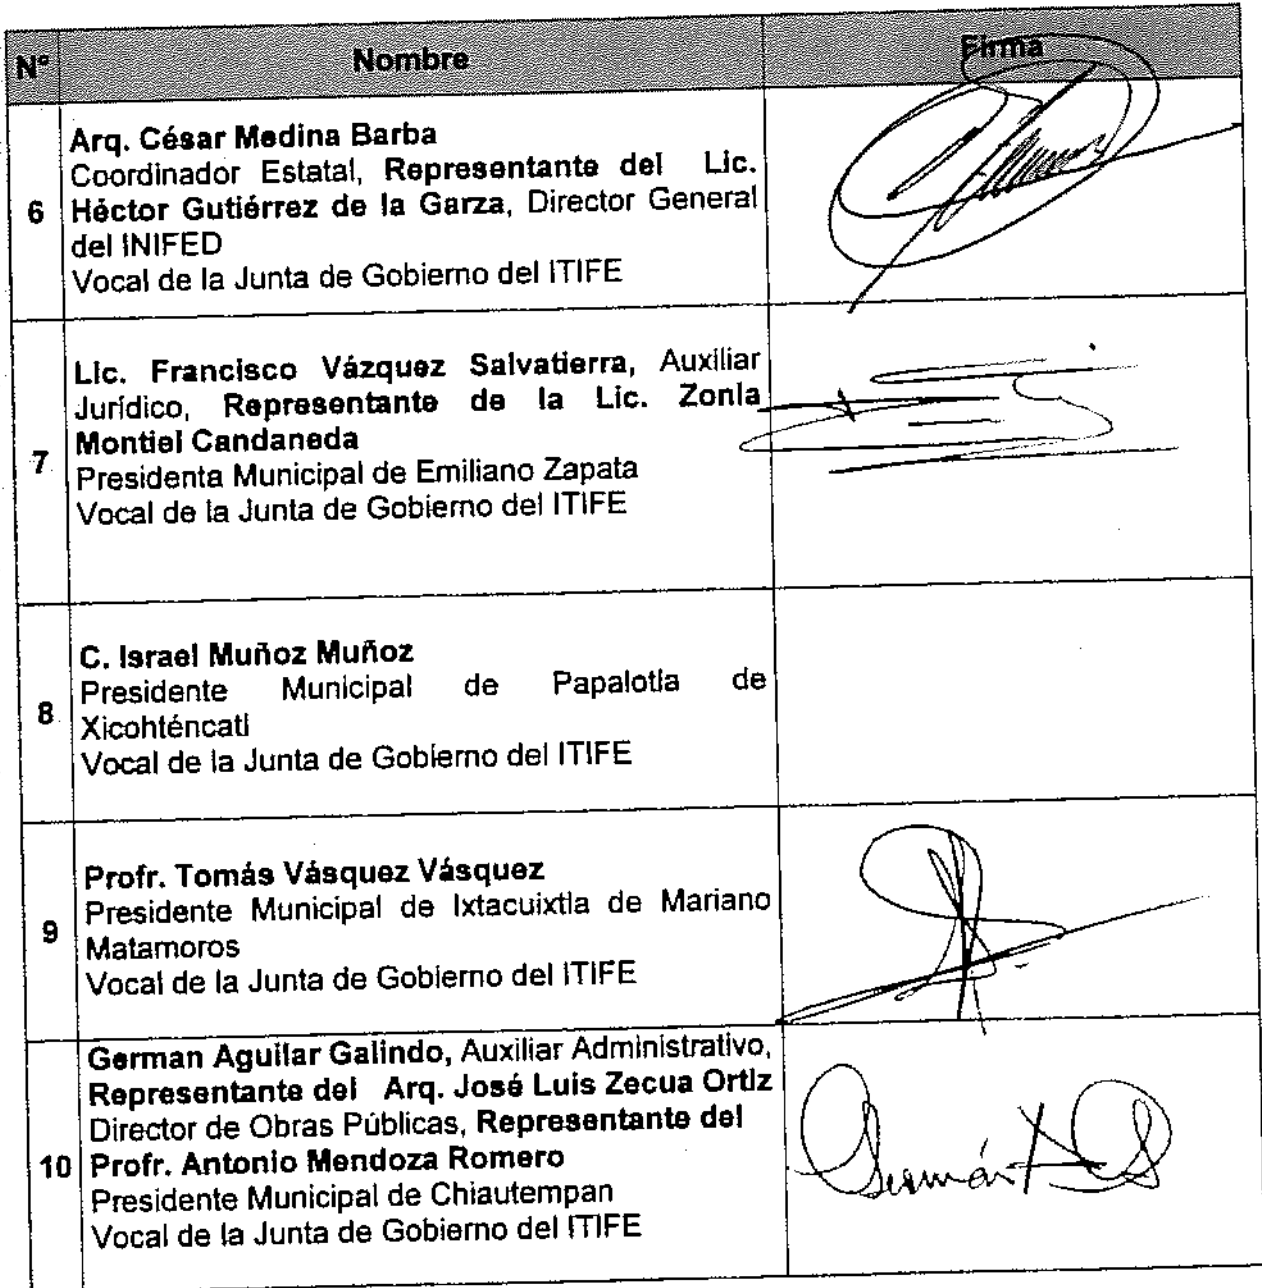 N° Nombre Firma
Arq. César Medina Barba
Coordinador Estatal, Representante del Lic.
6 Héctor Gutiérrez de la Garza, Director General
del INIFED
Vocal de la Junta de Gobierno del ITIFE
Lic. Francisco Vázquez Salvatierra, Auxiliar
Jurídico, Representante de la Lic. Zonia
Montiel Candaneda
7 Presidenta Municipal de Emiliano Zapata
Vocal de la Junta de Gobierno del ITIFE
C. Israel Muñoz Muñoz
Presidente Municipal de Papalotla de
8 Xicohténcatl
Vocal de la Junta de Gobierno del ITIFE
Profr. Tomás Vásquez Vásquez
Presidente Municipal de Ixtacuixtla de Mariano
9 Matamoros
Vocal de la Junta de Gobierno del ITIFE
German Aguilar Galindo, Auxiliar Administrativo,
Representante del Arq. José Luis Zecua Ortiz
Director de Obras Públicas, Representante del
10 Profr. Antonio Mendoza Romero Germán
Presidente Municipal de Chiautempan
Vocal de la Junta de Gobierno del ITIFE